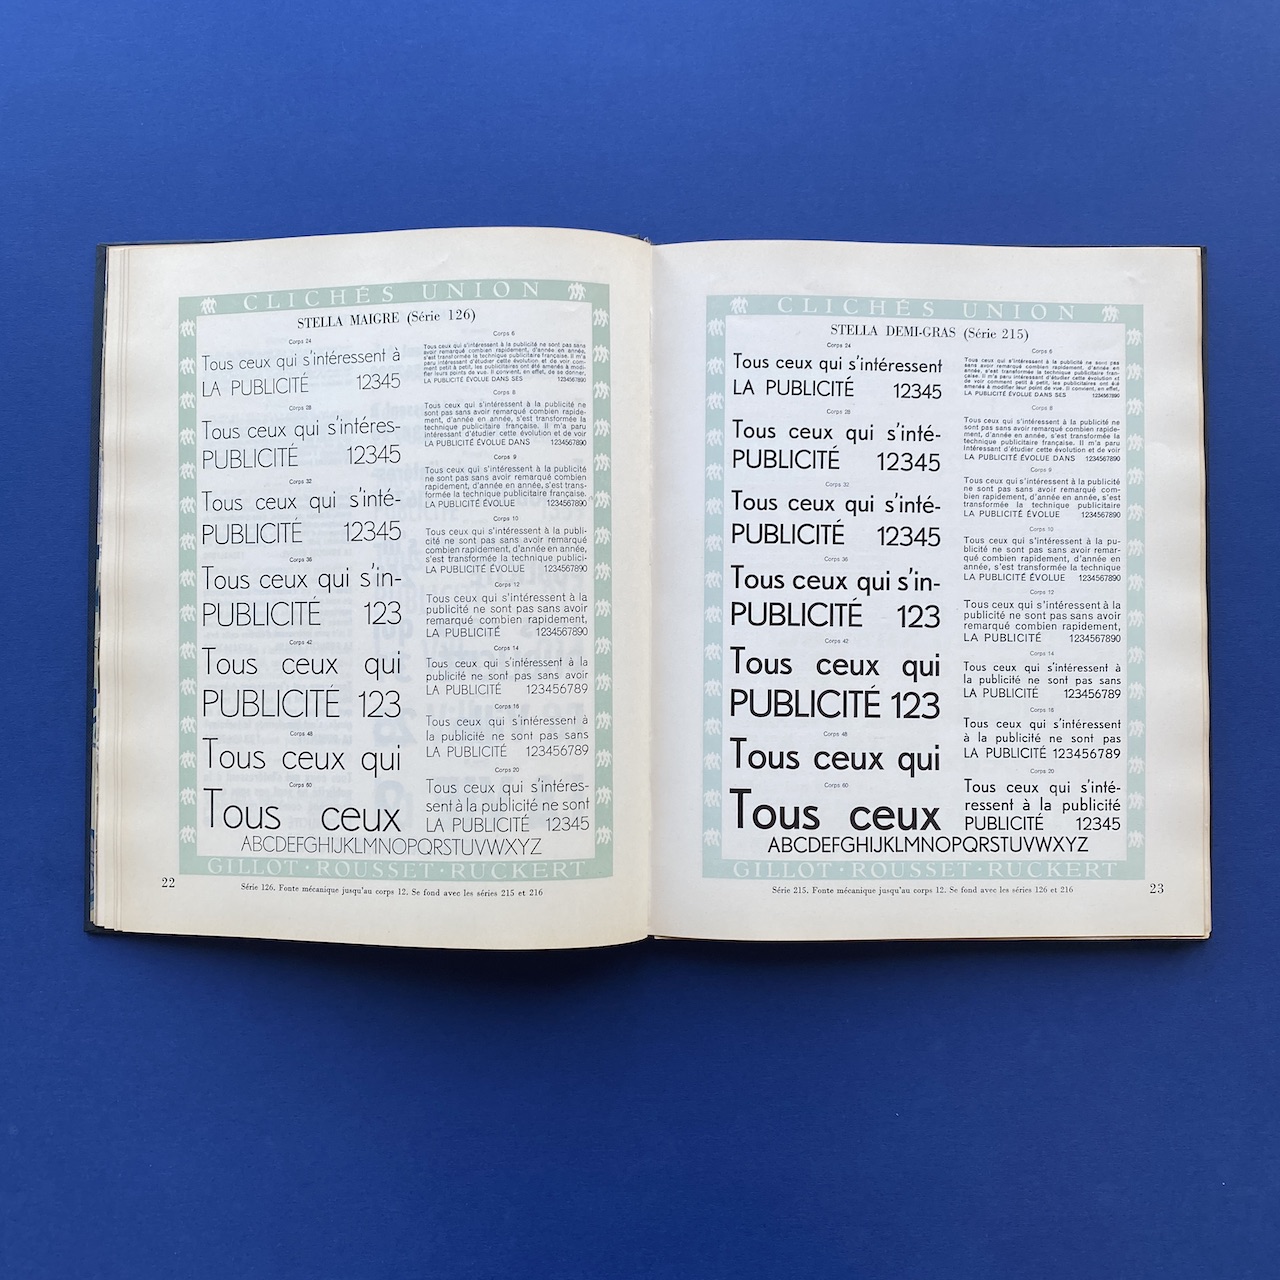 CLICHÉS UNION
STELLA MAIGRE (Série 126)
Corps 24
Tous ceux qui s'intéressent à
LA PUBLICITÉ 12345
Corps 28
Tous ceux qui s'intéres-
PUBLICITÉ 12345
Corps 32
Tous ceux qui s'inté-
PUBLICITÉ 12345
Corps 36
Tous ceux qui s'in-
PUBLICITÉ 123
Corps 42
Tous ceux qui
PUBLICITÉ 123
Corps 48
Tous ceux qui
Corps 60
Tous ceux
Corps 6
Tous ceux qui s'intéressent à la publicité ne sont pas sans
avoir remarqué combien rapidement, d'année en année,
s'est transformée la technique publicitaire française. Il m'a
paru intéressant d'étudier cette évolution et de voir com-
ment petit à petit, les publicitaires ont été amenés à modi-
fier leurs points de vue. Il convient, en effet, de se donner,
LA PUBLICITÉ ÉVOLUE DANS SES 1234567890
Corps 8
Tous ceux qui s'intéressent à la publicité ne
sont pas sans avoir remarqué combien rapide-
ment, d'année en année, s'est transformée la
technique publicitaire française. Il m'a paru
intéressant d'étudier cette évolution et de voir
LA PUBLICITÉ ÉVOLUE DANS 1234567890
Corps 9
Tous ceux qui s'intéressent à la publicité
ne sont pas sans avoir remarqué combien
rapidement, d'année en année, s'est trans-
formée la technique publicitaire française.
LA PUBLICITÉ ÉVOLUE 1234567890
Corps 10
Tous ceux qui s'intéressent à la publi-
cité ne sont pas sans avoir remarqué
combien rapidement, d'année en année,
s'est transformée la technique publici-
LA PUBLICITÉ ÉVOLUE 1234567890
Corps 12
Tous ceux qui s'intéressent à la
publicité ne sont pas sans avoir
remarqué combien rapidement,
LA PUBLICITÉ 1234567890
Corps 14
Tous ceux qui s'intéressent à la
publicité ne sont pas sans avoir
LA PUBLICITÉ 123456789
Corps 16
Tous ceux qui s'intéressent à
la publicité ne sont pas sans
LA PUBLICITÉ 123456789
Corps 20
Tous ceux qui s'intéres-
sent à la publicité ne sont
LA PUBLICITÉ 12345
ABCDEFGHIJKLMNOPQRSTUVWXYZ
GILLOT · ROUSSET · RUCKERT
22
Série 126. Fonte mécanique jusqu'au corps 12. Se fond avec les séries 215 et 216
CLICHÉS UNION
STELLA DEMI-GRAS (Série 215)
Corps 24
Tous ceux qui s'intéressent
LA PUBLICITÉ 12345
Corps 28
Tous ceux qui s'inté-
PUBLICITÉ 12345
Corps 32
Tous ceux qui s'inté-
PUBLICITÉ 12345
Corps 36
Tous ceux qui s'in-
PUBLICITÉ 123
Corps 42
Tous ceux qui
PUBLICITÉ 123
Corps 48
Tous ceux qui
Corps 60
Tous ceux
Corps 6
Tous ceux qui s'intéressent à la publicité ne sont pas
sans avoir remarqué combien rapidement, d'année en
année, s'est transformée la technique publicitaire fran-
çaise. Il m'a paru intéressant d'étudier cette évolution et
de voir comment petit à petit, les publicitaires ont été
amenés à modifier leur point de vue. Il convient, en effet,
LA PUBLICITÉ ÉVOLUE DANS SES 1234567890
Corps 8
Tous ceux qui s'intéressent à la publicité ne
sont pas sans avoir remarqué combien rapide-
ment, d'année en année, s'est transformée la
technique publicitaire française. Il m'a paru
intéressant d'étudier cette évolution et de voir
LA PUBLICITÉ ÉVOLUE DANS 1234567890
Corps 9
Tous ceux qui s'intéressent à la publicité
ne sont pas sans avoir remarqué com-
bien rapidement, d'année en année, s'est
transformée la technique publicitaire
LA PUBLICITÉ ÉVOLUE 1234567890
Corps 10
Tous ceux qui s'intéressent à la pu-
blicité ne sont pas sans avoir remar-
qué combien rapidement, d'année en
année, s'est transformée la technique
LA PUBLICITÉ ÉVOLUE 1234567890
Corps 12
Tous ceux qui s'intéressent à la
publicité ne sont pas sans avoir
remarqué combien rapidement,
LA PUBLICITÉ 1234567890
Corps 14
Tous ceux qui s'intéressent à
la publicité ne sont pas sans
LA PUBLICITÉ 123456789
Corps 16
Tous ceux qui s'intéressent
à la publicité ne sont pas
LA PUBLICITÉ 123456789
Corps 20
Tous ceux qui s'inté-
ressent à la publicité
PUBLICITÉ 12345
ABCDEFGHIJKLMNOPQRSTUVWXYZ
GILLOT · ROUSSET · RUCKERT
Série 215. Fonte mécanique jusqu'au corps 12. Se fond avec les séries 126 et 216
23